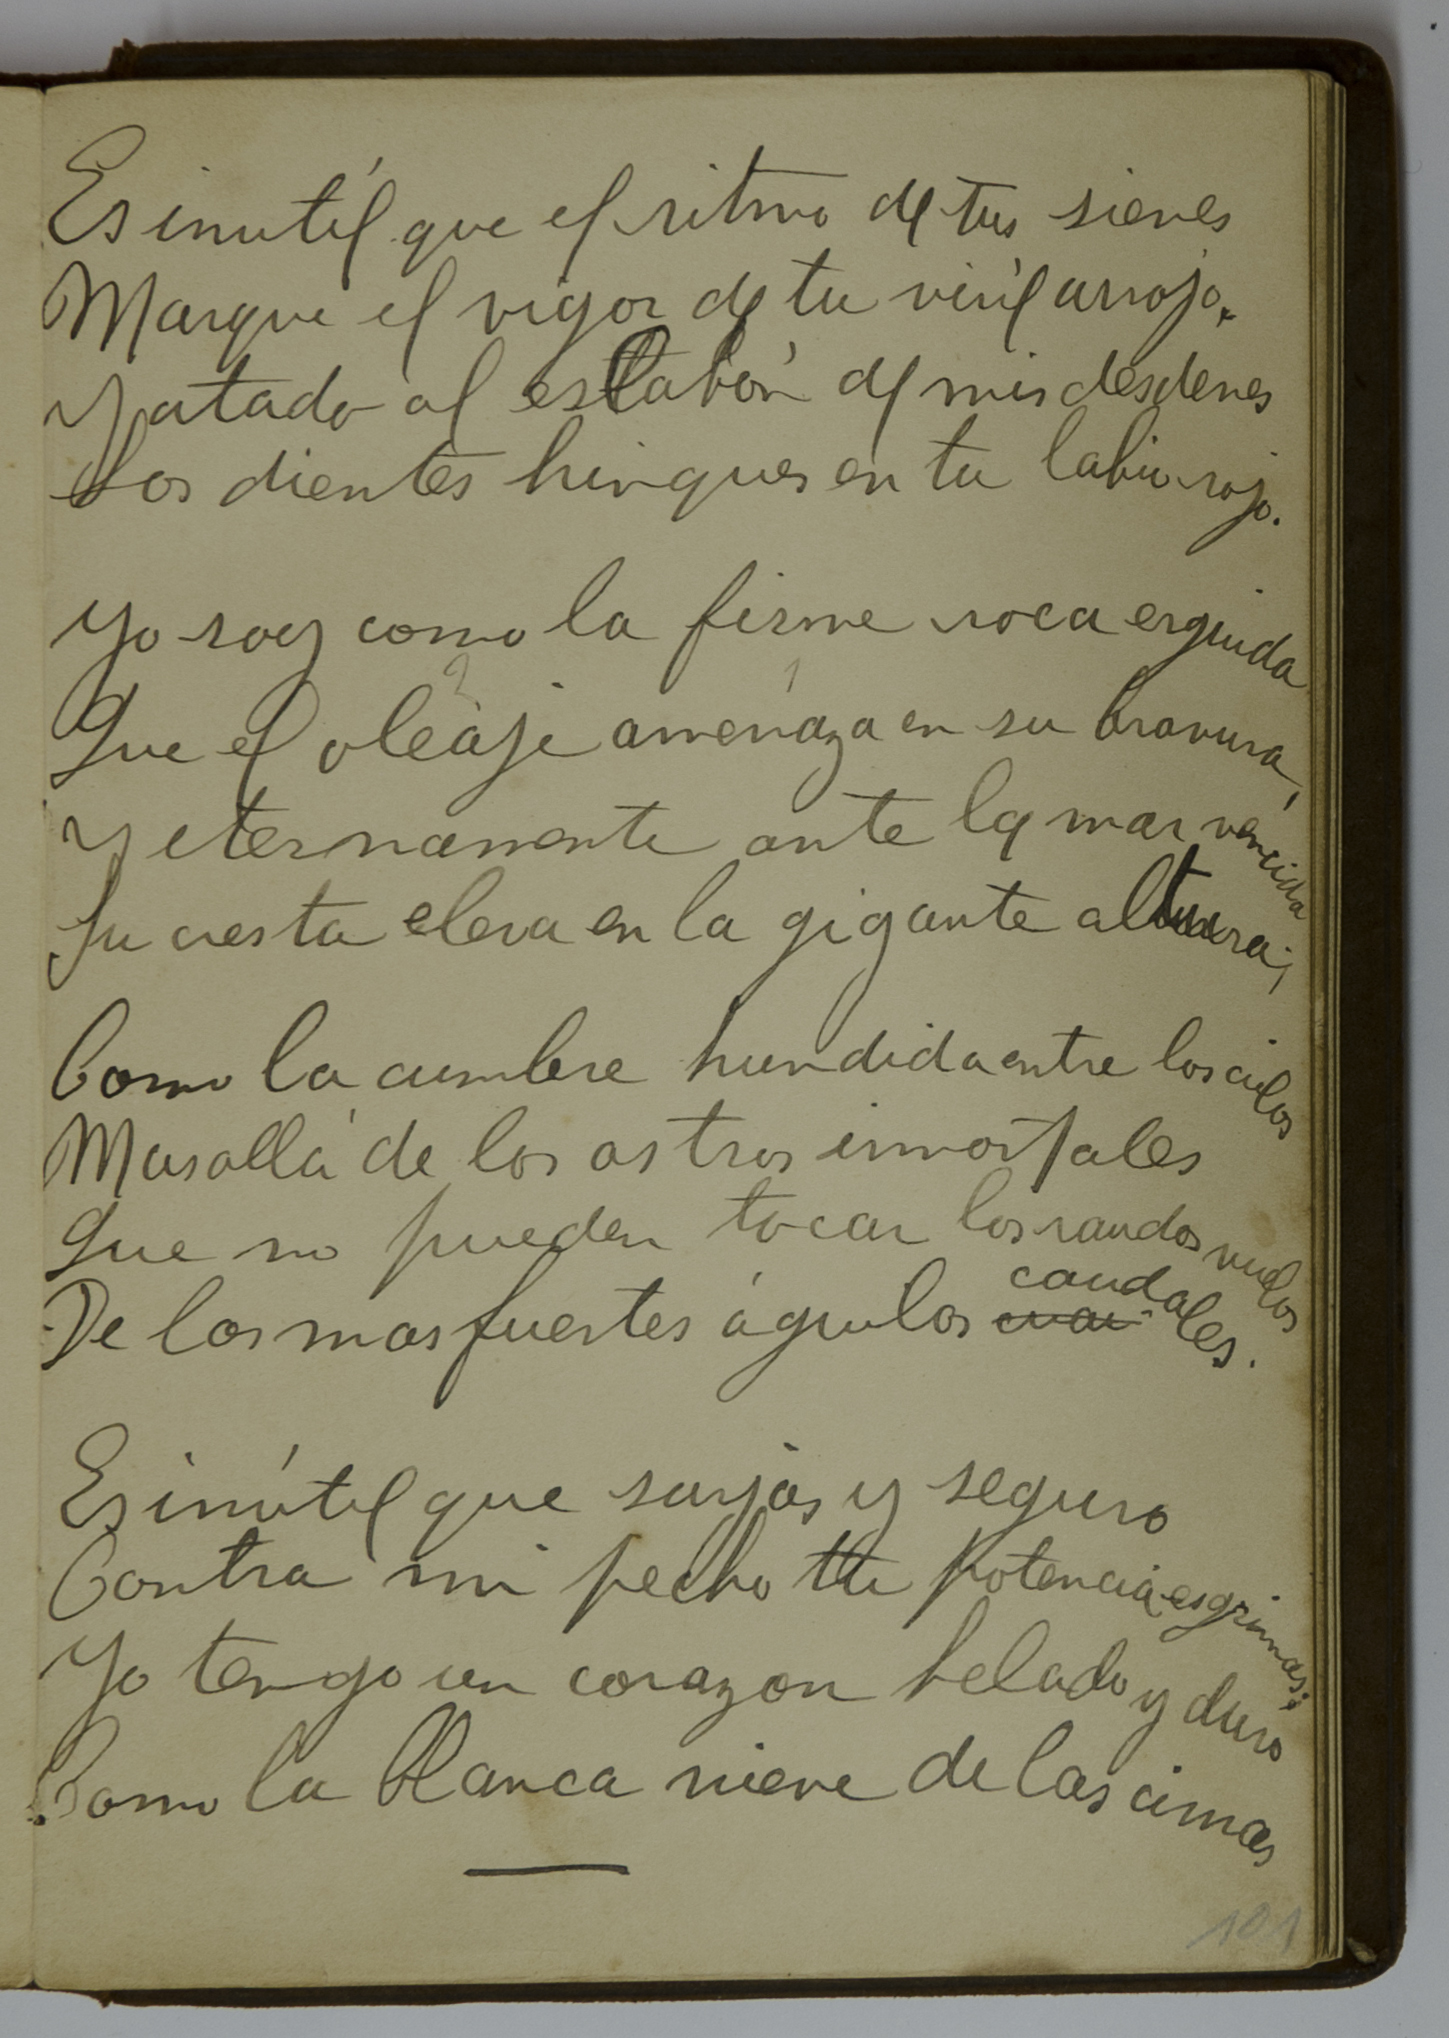 Es inutíl que el ritmo de tus sienes
Marque el vigor de tu viríl arrojo.
Y atado al eslabón de mis desdenes
Los dientes hinques en tu labio rojo.
Yo soy como la firme roca erguida
Que el oleaje amenaza en su bravura,
Y eternamente ante la mar vencida
Su cresta eleva en la gigante altura;
Como la cumbre hundida entre los cielos
Mas allá de los astros inmortales
Que no pueden tocar los raudos vuelos
De las mas fuertes águilas caudales.
Es inútil que surjas y seguro
Contra mi pecho tu potencia esgrimas;
Yo tengo un corazon helado y duro
Como la blanca nieve de las cimas
101